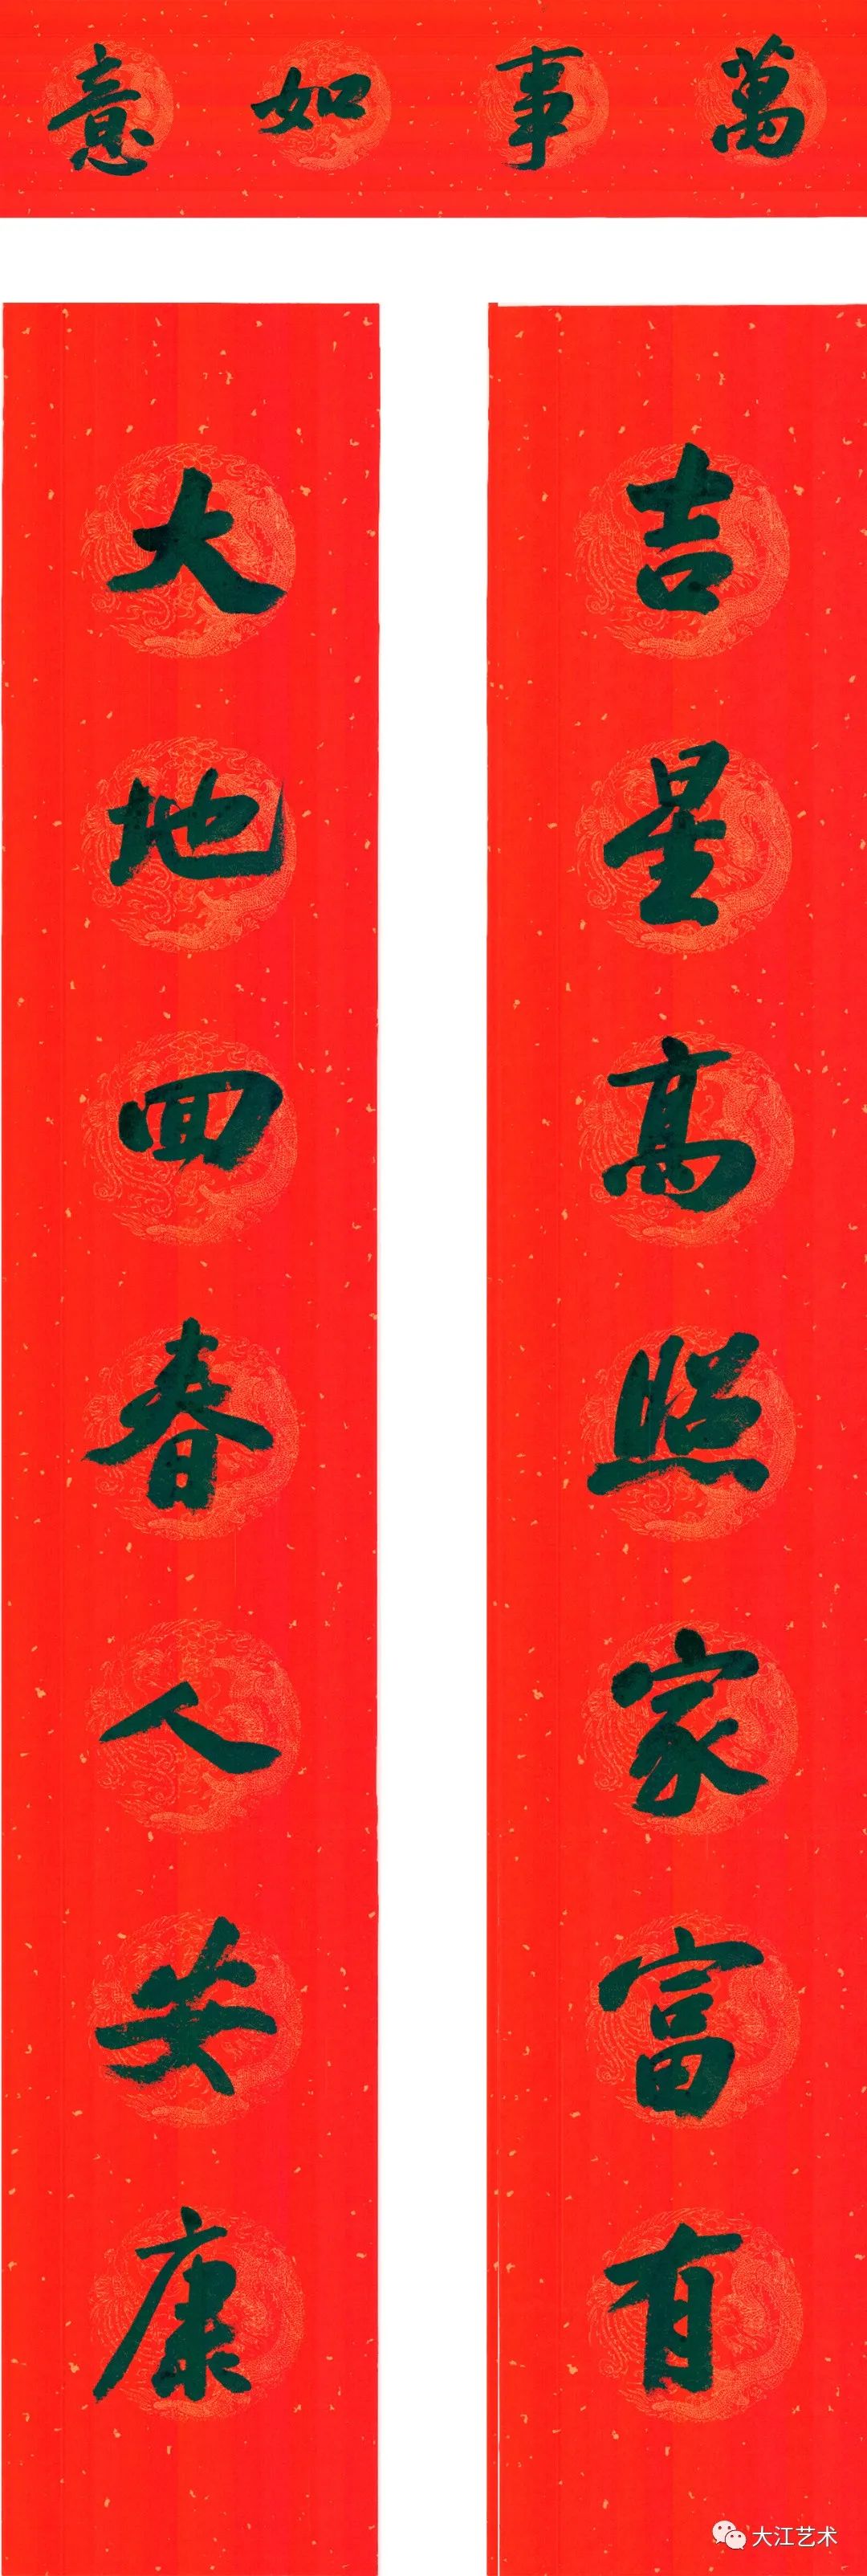 萬事如意
吉星高照家富有
大地回春人安康
大江艺术